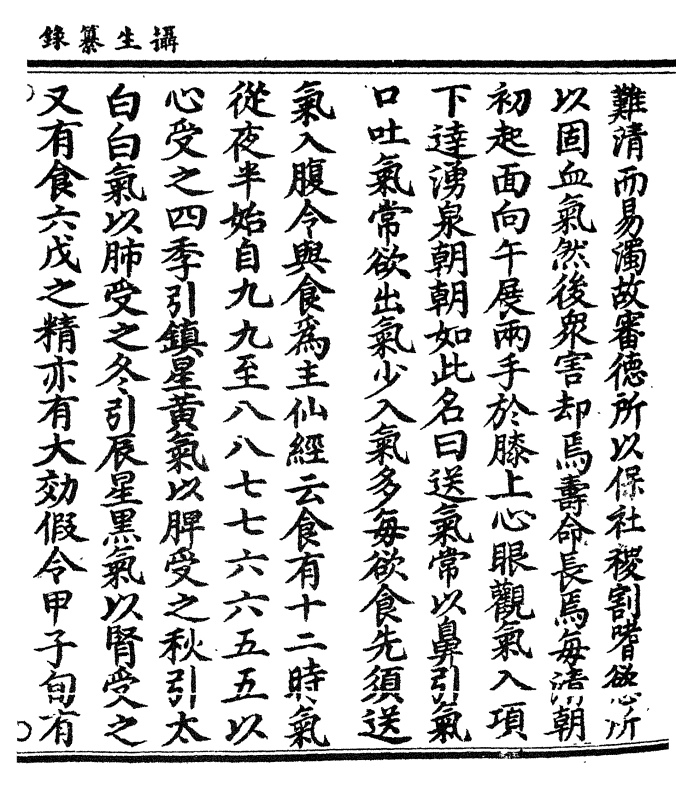 攝生纂錄
難清而易濁故審德所以保社稷割嗜慾所
以固血氣然後衆害却焉壽命長焉每清朝
初起面向午展兩手於膝上心眼觀氣入項
下達湧泉朝朝如此名曰送氣常以鼻引氣
口吐氣常欲出氣少入氣多每欲食先須送
氣入腹令與食爲主仙經云食有十二時氣
從夜半始自九九至八八七七六六五五以
心受之四季引鎮星黃氣以脾受之秋引太
白白氣以肺受之冬引辰星黑氣以腎受之
又有食六戊之精亦有大効假令甲子旬有